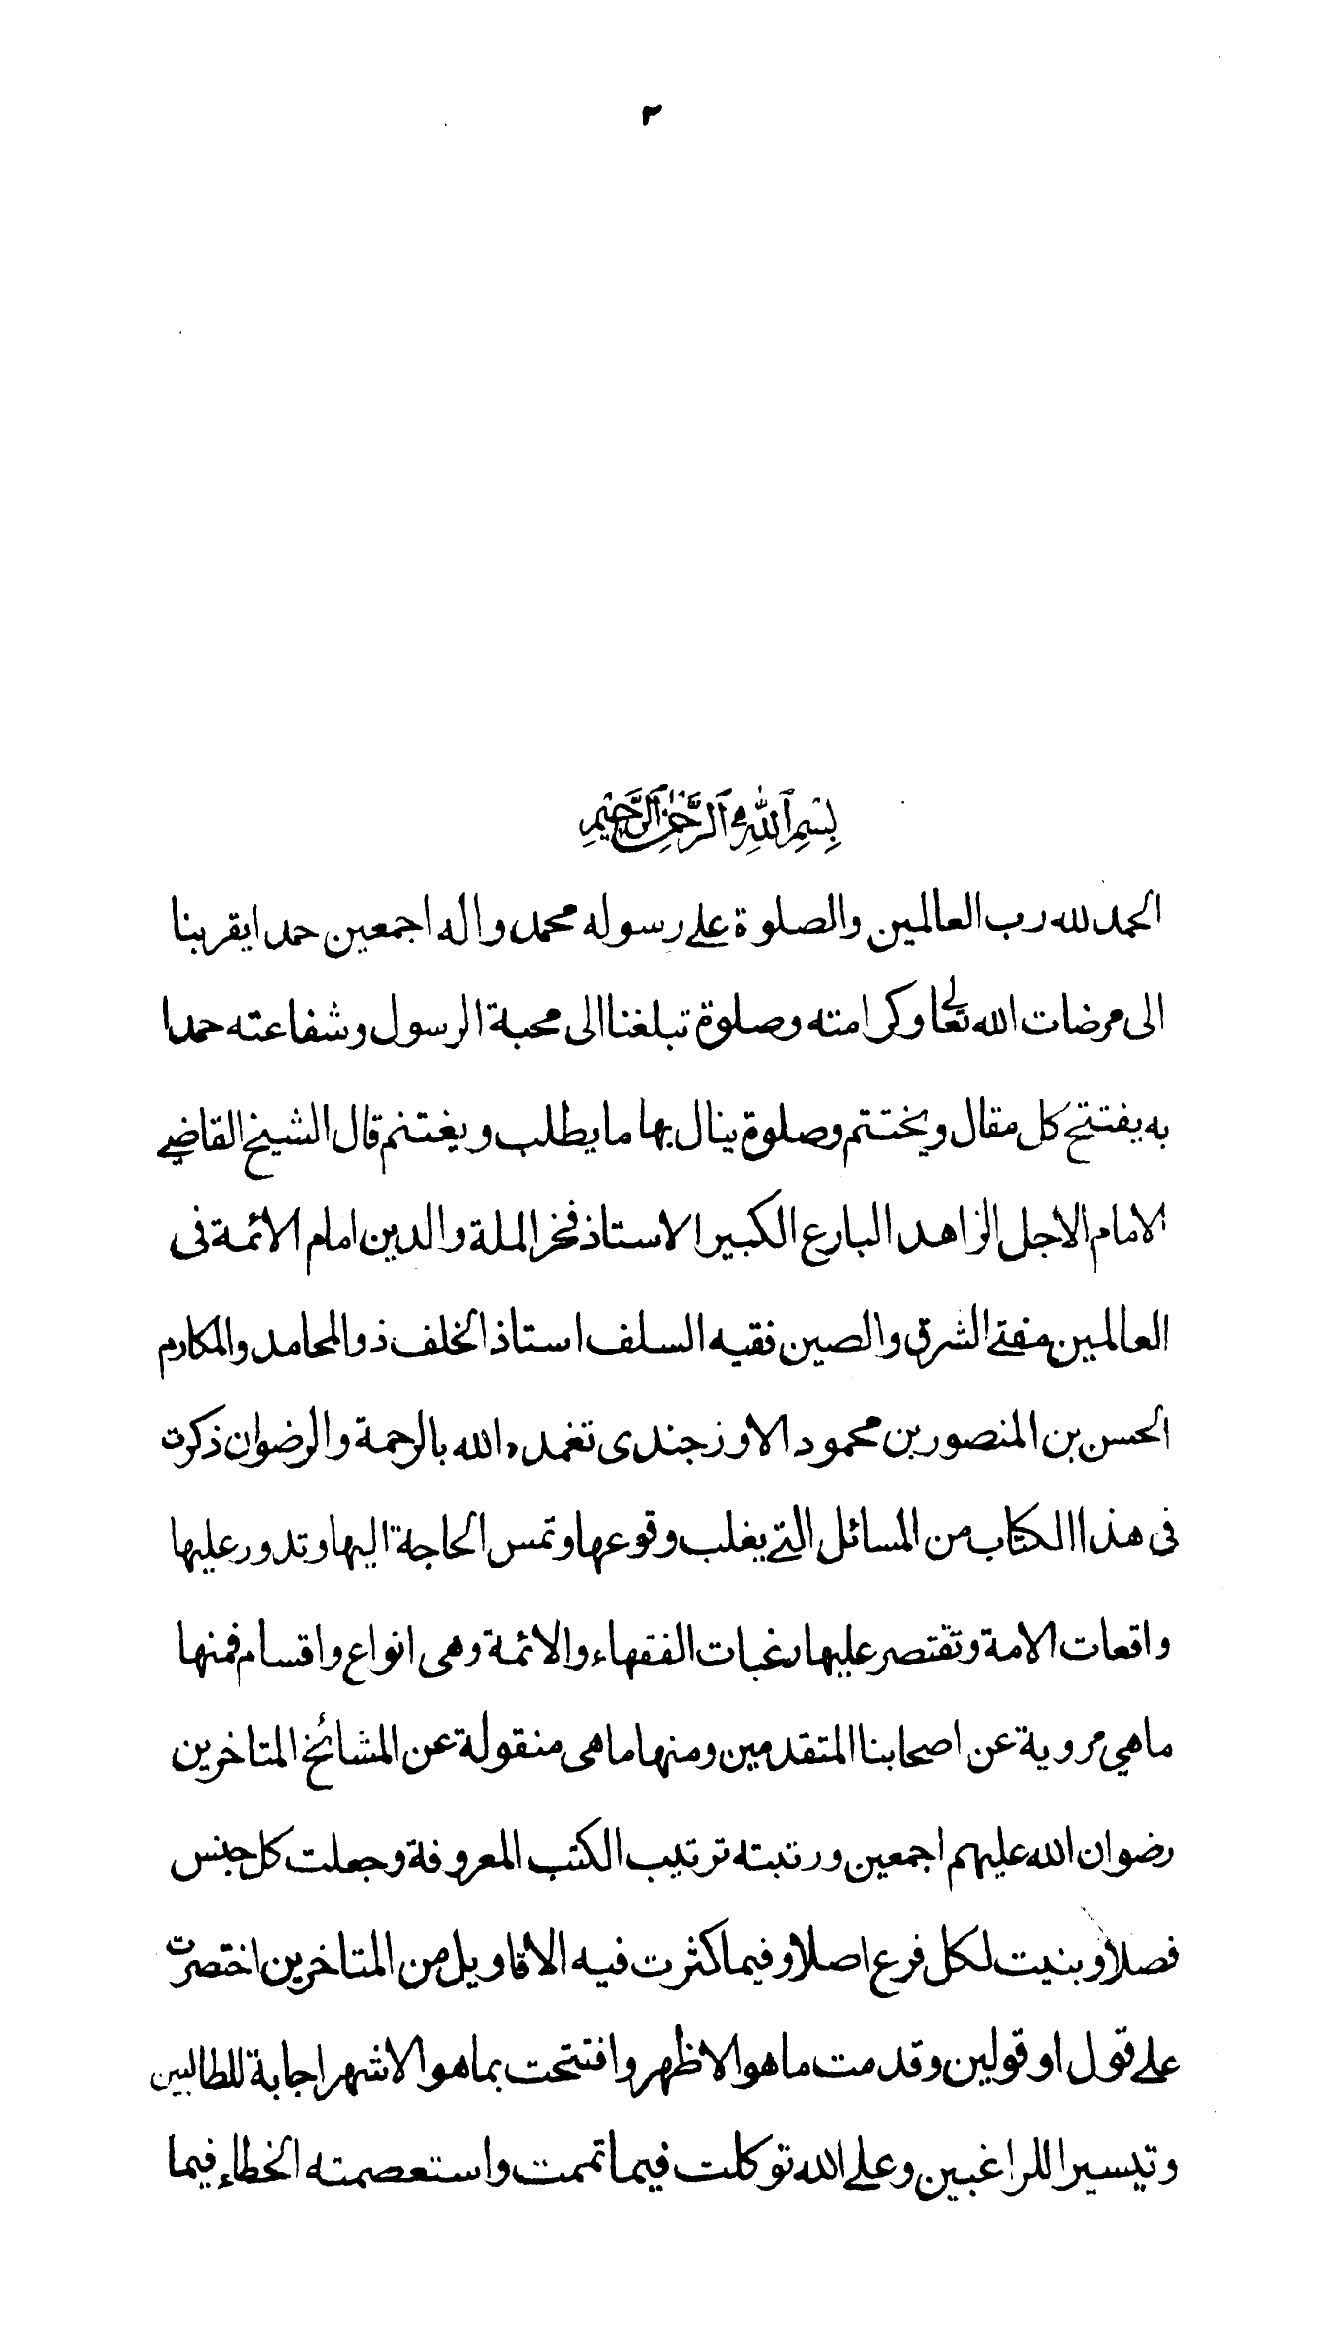 ٣
بِسْمِ ٱللَّهِ ٱلرَّحْمٰنِ ٱلرَّحِيْمِ
الحمد لله رب العالمين والصلوة على رسوله محمد واله اجمعين حمدا يقربنا
الى مرضات الله تعالى وكرامته وصلوة تبلغنا الى محبة الرسول وشفاعته حمدا
به يفتتح كل مقال ويختتم وصلوة ينال بها ما يطلب ويغتنم قال الشيخ القاضي
الامام الاجل الزاهد البارع الكبير الاستاذ فخر الملة والدين امام الائمة فى
العالمين مفتى الشرق والصين فقيه السلف استاذ الخلف ذو المحامد والمكارم
الحسن بن المنصور بن محمود الاوزجندى تغمده الله بالرحمة والرضوان ذكرت
فى هذا الكتاب من المسائل التى يغلب وقوعها وتمس الحاجة اليها وتدور عليها
واقعات الامة وتقتصر عليها رغبات الفقهاء والائمة وهى انواع واقسام فمنها
ما هي مروية عن اصحابنا المتقدمين ومنها ما هى منقولة عن المشائخ المتاخرين
رضوان الله عليهم اجمعين ورتبته ترتيب الكتب المعروفة وجعلت كل جنس
فصلا وبنيت لكل فرع اصلا وفيما كثرت فيه الاقاويل من المتاخرين اختصرت
على قول او قولين وقدمت ما هو الاظهر وافتتحت بما هو الاشهر اجابة للطالبين
وتيسيرا للراغبين وعلى الله توكلت فيما تممت واستعصمته الخطاء فيما